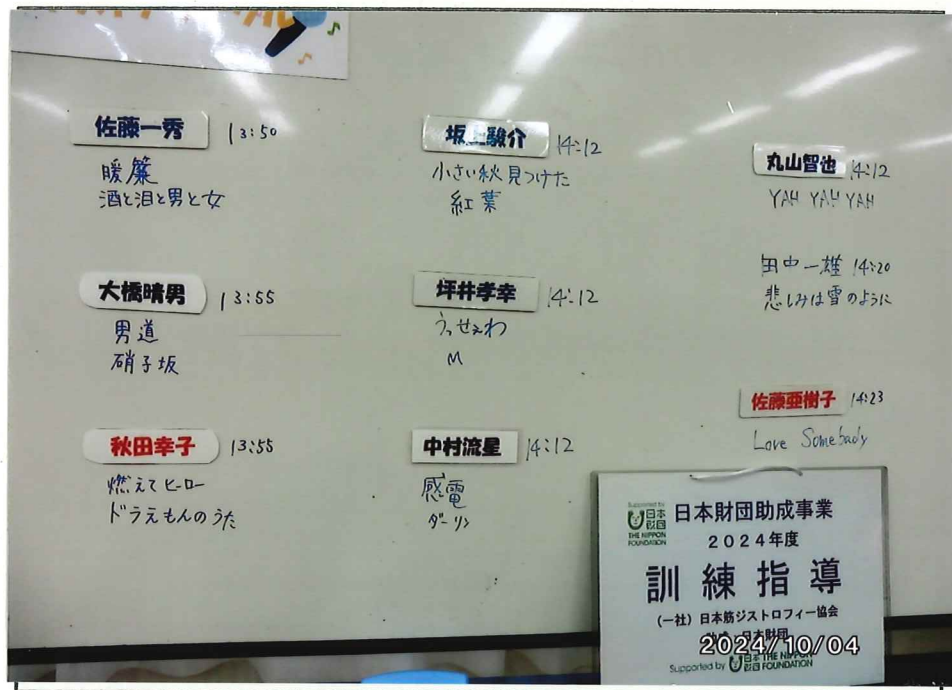 佐藤一秀 13:50
暖簾
酒と泪と男と女
大橋晴男 13:55
男道
硝子坂
秋田幸子 13:55
燃えてヒーロー
ドラえもんのうた
坂上駿介 14:12
小さい秋見つけた
紅葉
坪井孝幸 14:12
うっせぇわ
M
中村流星 14:12
感電
ダーリン
丸山智也 14:12
YAH YAH YAH
田中一雄 14:20
悲しみは雪のように
佐藤亜樹子 14:23
Love Somebady
Supported by 日本財団 THE NIPPON FOUNDATION
日本財団助成事業
2024年度
訓練指導
(一社)日本筋ジストロフィー協会
日本財団
2024/10/04
Supported by 日本財団 THE NIPPON FOUNDATION